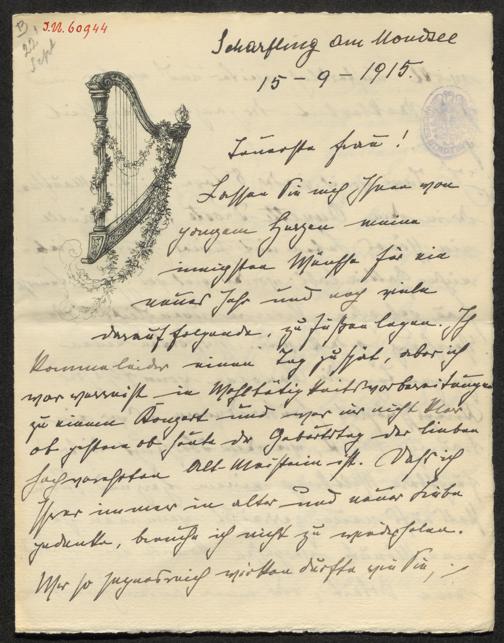 B,
22.
Sept
I.N. 60944
Scharfling am Mondsee
15-9-1915
Teuerste Frau!
Lassen Sie mich Ihnen von
ganzem Herzen meine
innigsten Wünsche für ein
neues Jahr und noch viele
darauf folgende, zu Füßen legen. Ich
komme leider einen Tag zu spät, aber ich
war verreist in Wohltätigkeitsvorbereitungen
zu einem Konzert und war mir nicht klar
ob gestern ob heute der Geburtstag der lieben
hochverehrten Altmeisterin ist. Daß ich
Ihrer immer in alter und neuer Liebe
gedenke, brauche ich nicht zu wiederholen.
Wer so segensreich wirken durfte wie Sie,